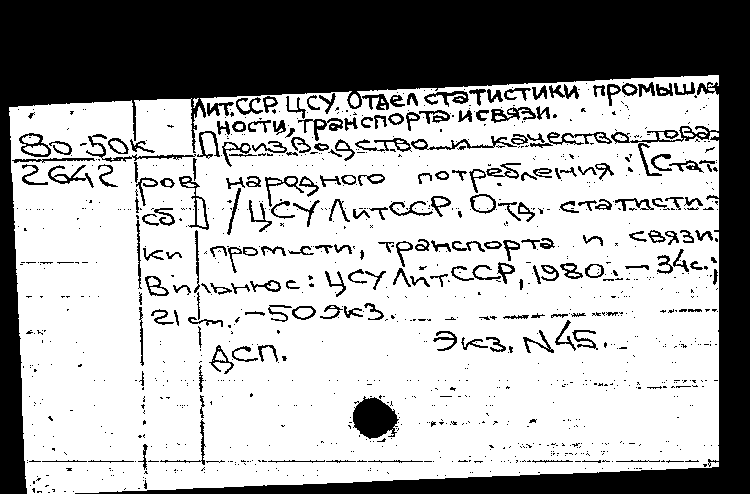 Лит.ССР. ЦСУ. Отдел статистики промышлен
ности, транспорта и связи.
80-50к Производство и качество това-
2642 ров народного потребления : [Стат.
сб.] / ЦСУ ЛитССР, Отд. статисти-
ки пром-сти, транспорта и связи.
Вильнюс : ЦСУ Лит.ССР, 1980. – 34с.;
21 см. – 50 экз.
ДСП. Экз. N45.